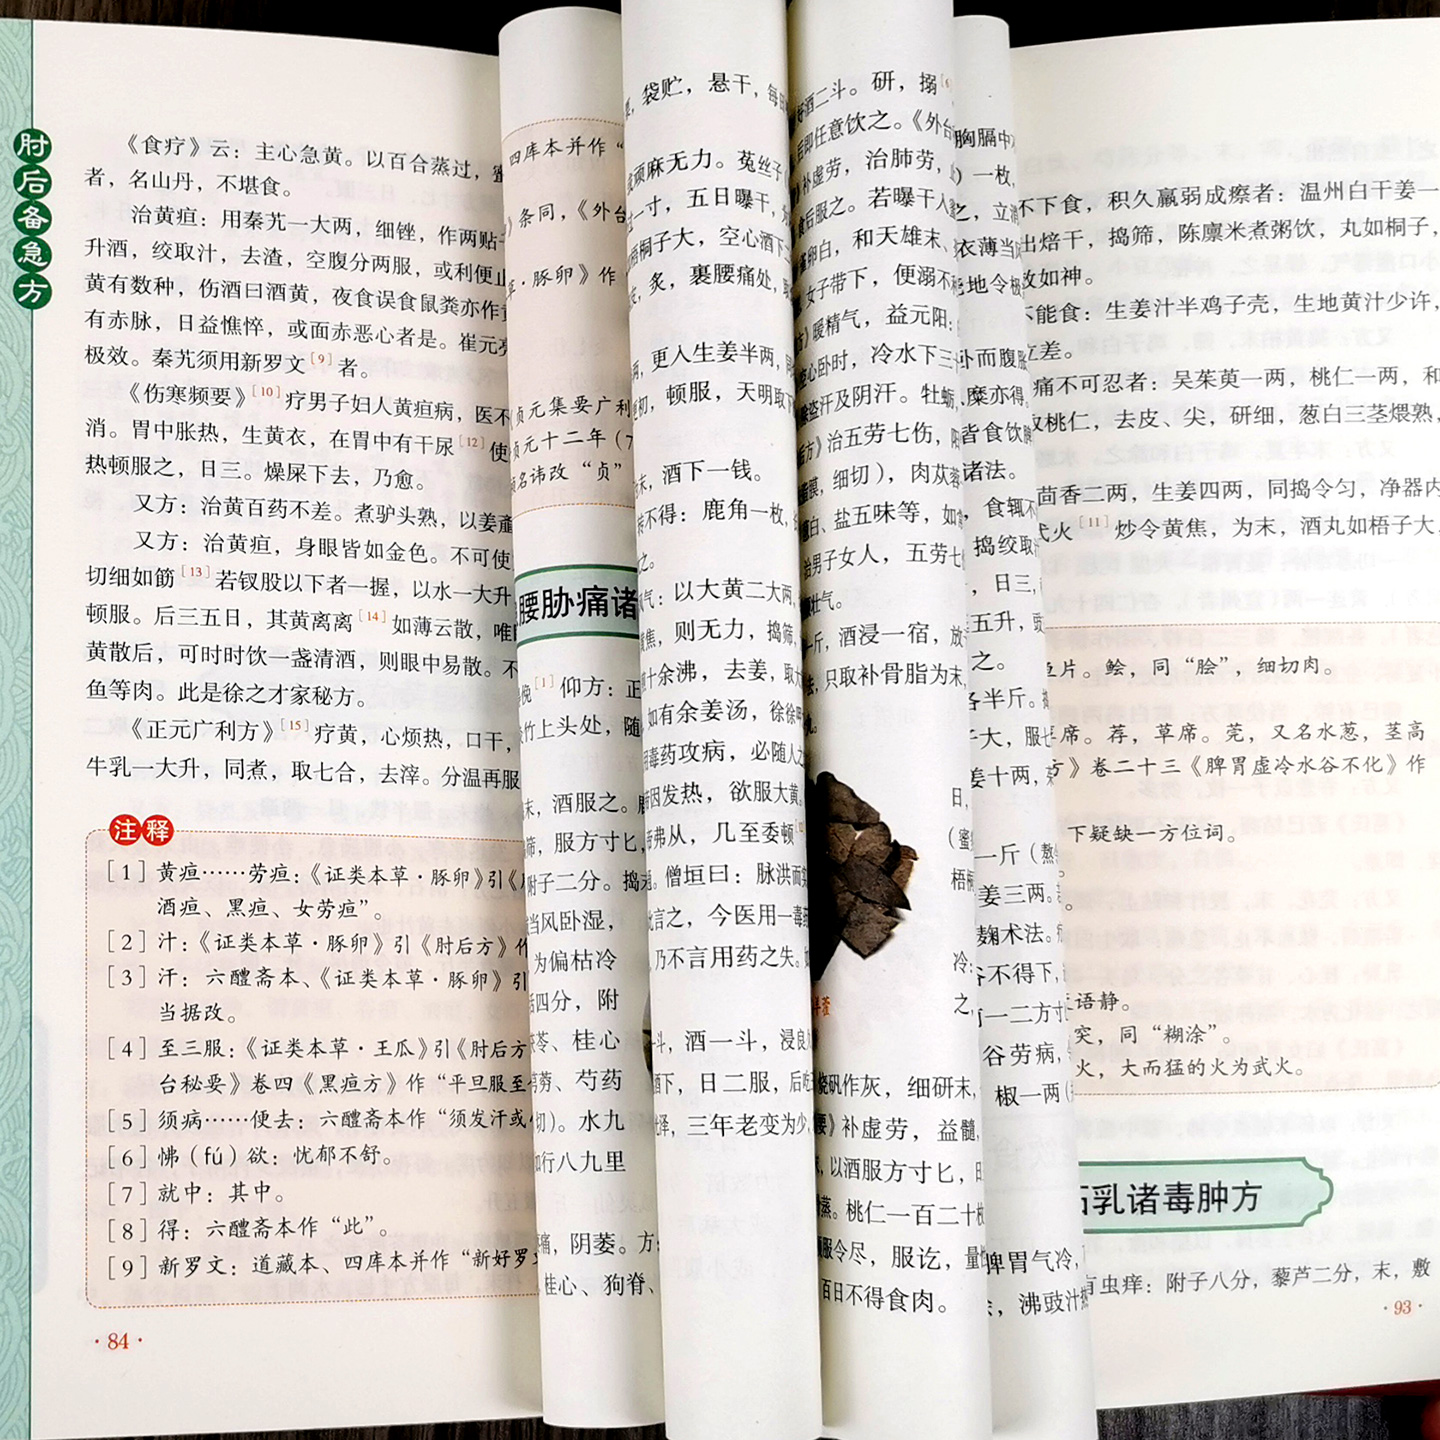 肘后备急方
《食疗》云：主心急黄。以百合蒸过，蜜
者，名山丹，不堪食。
治黄疸：用秦艽一大两，细锉，作两贴子
升酒，绞取汁，去渣，空腹分两服，或利便止
黄有数种，伤酒曰酒黄，夜食误食鼠粪亦作黄
有赤脉，日益憔悴，或面赤恶心者是。崔元亮
极效。秦艽须用新罗文[9]者。
《伤寒频要》[10]疗男子妇人黄疸病，医不
消。胃中胀热，生黄衣，在胃中有干尿[12]使
热顿服之，日三。燥屎下去，乃愈。
又方：治黄百药不差。煮驴头熟，以姜齑
又方：治黄疸，身眼皆如金色。不可使
切细如筯[13]若钗股以下者一握，以水一大升
顿服。后三五日，其黄离离[14]如薄云散，唯
黄散后，可时时饮一盏清酒，则眼中易散。不
鱼等肉。此是徐之才家秘方。
《正元广利方》[15]疗黄，心烦热，口干，
牛乳一大升，同煮，取七合，去滓。分温再服
注释
[1]黄疸……劳疸：《证类本草·豚卵》引《
酒疸、黑疸、女劳疸”。
[2]汁：《证类本草·豚卵》引《肘后方》作
[3]汗：六醴斋本、《证类本草·豚卵》引
当据改。
[4]至三服：《证类本草·王瓜》引《肘后方
台秘要》卷四《黑疸方》作“平旦服至
[5]须病……便去：六醴斋本作“须发汗或
[6]怫（fú）欲：忧郁不舒。
[7]就中：其中。
[8]得：六醴斋本作“此”。
[9]新罗文：道藏本、四库本并作“新好罗
·84·
四库本并作“
》条同，《外台
草·豚卵》作
贞元集要广利
贞元十二年（7
名讳改“贞”
腰胁痛诸
[1]仰方：正
竹上头处，随
末，酒服之。
筛，服方寸匕，
附子二分。捣
当风卧湿，
为偏枯冷
四分，附
茯苓、桂心
芎䓖、芍药
切）。水九
如行八九里
痛，阴萎。方：
桂心、狗脊、
袋贮，悬干，每日
顽麻无力。菟丝子
一寸，五日曝干，
梧桐子大，空心酒下
炙，裹腰痛处，
两，更入生姜半两，同
初，顿服，天明取下
末，酒下一钱。
转不得：鹿角一枚，
之。
气：以大黄二大两，
黄焦，则无力，捣筛，
十余沸，去姜，取大
如有余姜汤，徐徐呷
用毒药攻病，必随人之
帝因发热，欲服大黄。
帝弗从，几至委顿
僧垣曰：脉洪而实
言之，今医用一毒药
乃不言用药之失。如
斗，酒一斗，浸良久
酒下，日二服，后吃
择，三年老变为少，
好酒二斗。研，搦[6]
后即任意饮之。《外台
补虚劳，治肺劳，
食后服之。若曝干
卵白，和天雄末、
女子带下，便溺不
暖精气，益元阳：
心卧时，冷水下三
盗汗及阴汗。牡蛎
》治五劳七伤，阳
膜，细切），肉苁蓉
葱白、盐五味等，如常
治男子女人，五劳七
壮气。
斤，酒浸一宿，放
去，只取补骨脂为末，
烧矾作灰，细研末，
》补虚劳，益髓，
以酒服方寸匕，日
蒸。桃仁一百二十枚
顿服令尽，服讫，量
百日不得食肉。
胸膈中
）一枚，
之，立消
衣薄当风
地令极
卧而腹胀
糜亦得。
皆食饮脾
诸法。
，食辄不
捣绞取
，日三，
五升，豉
之。
各半斤。
子大，服七
姜十两，
日，
（蜜
梧桐
冷：
之，
一斤（熬
姜三两。
麹术法。
谷不得下，
一二方寸
谷劳病，
椒一两（
脾胃气冷，
，沸豉汁
不下食，积久羸弱成瘵者：温州白干姜一
出焙干，捣筛，陈廪米煮粥饮，丸如桐子，
效如神。
不能食：生姜汁半鸡子壳，生地黄汁少许，
立差。
痛不可忍者：吴茱萸一两，桃仁一两，和
取桃仁，去皮、尖，研细，葱白三茎煨熟，
茴香二两，生姜四两，同捣令匀，净器内
武火[11]炒令黄焦，为末，酒丸如梧子大，
鱼片。鲙，同“脍”，细切肉。
草席。荐，草席。莞，又名水葱，茎高
方》卷二十三《脾胃虚冷水谷不化》作
下疑缺一方位词。
语静。
突，同“糊涂”。
火，大而猛的火为武火。
石乳诸毒肿方
有虫痒：附子八分，藜芦二分，末，敷
·93·